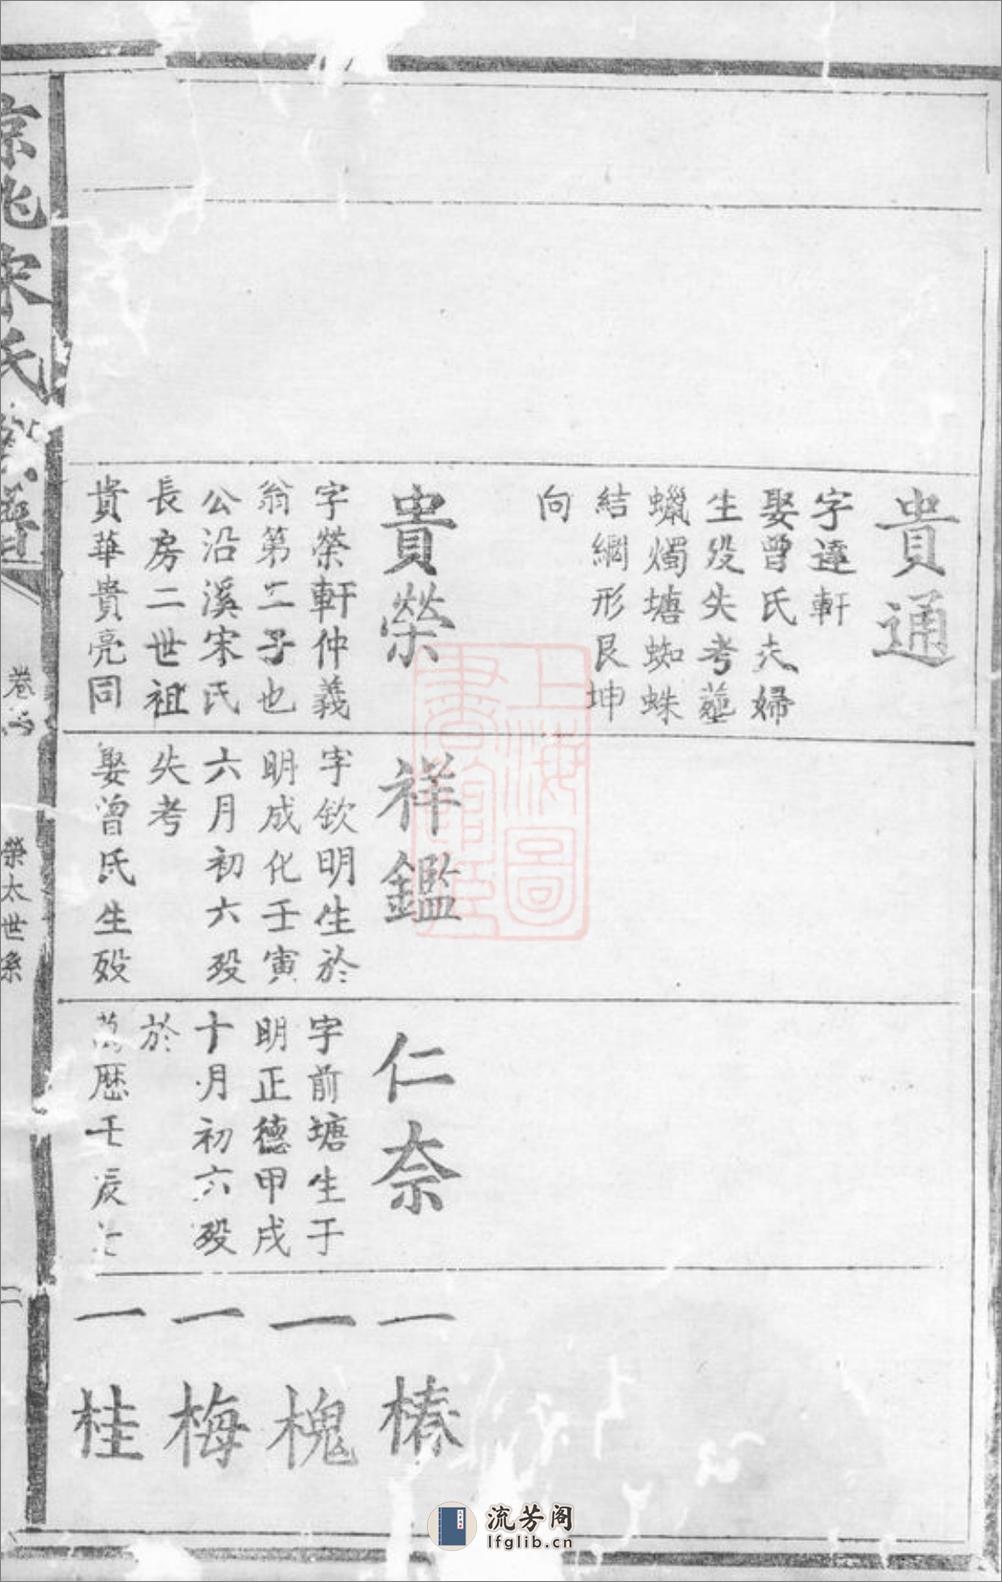 貴通
字達軒
娶曾氏夫婦
生殁失考塟
蠟燭塘蜘蛛
結網形艮坤
向
貴榮
字榮軒仲義
翁第二子也
公沿溪宋氏
長房二世祖
貴華貴亮同
祥鑑
字欽明生於
明成化壬寅
六月初六殁
失考
娶曾氏生殁
仁奈
字前塘生于
明正德甲戌
十月初六殁
於
萬歷壬辰
一椿
一槐
一梅
一桂
京兆宋氏
卷
榮太世系
二
上海圖
書館藏
流芳阁
lfglib.cn